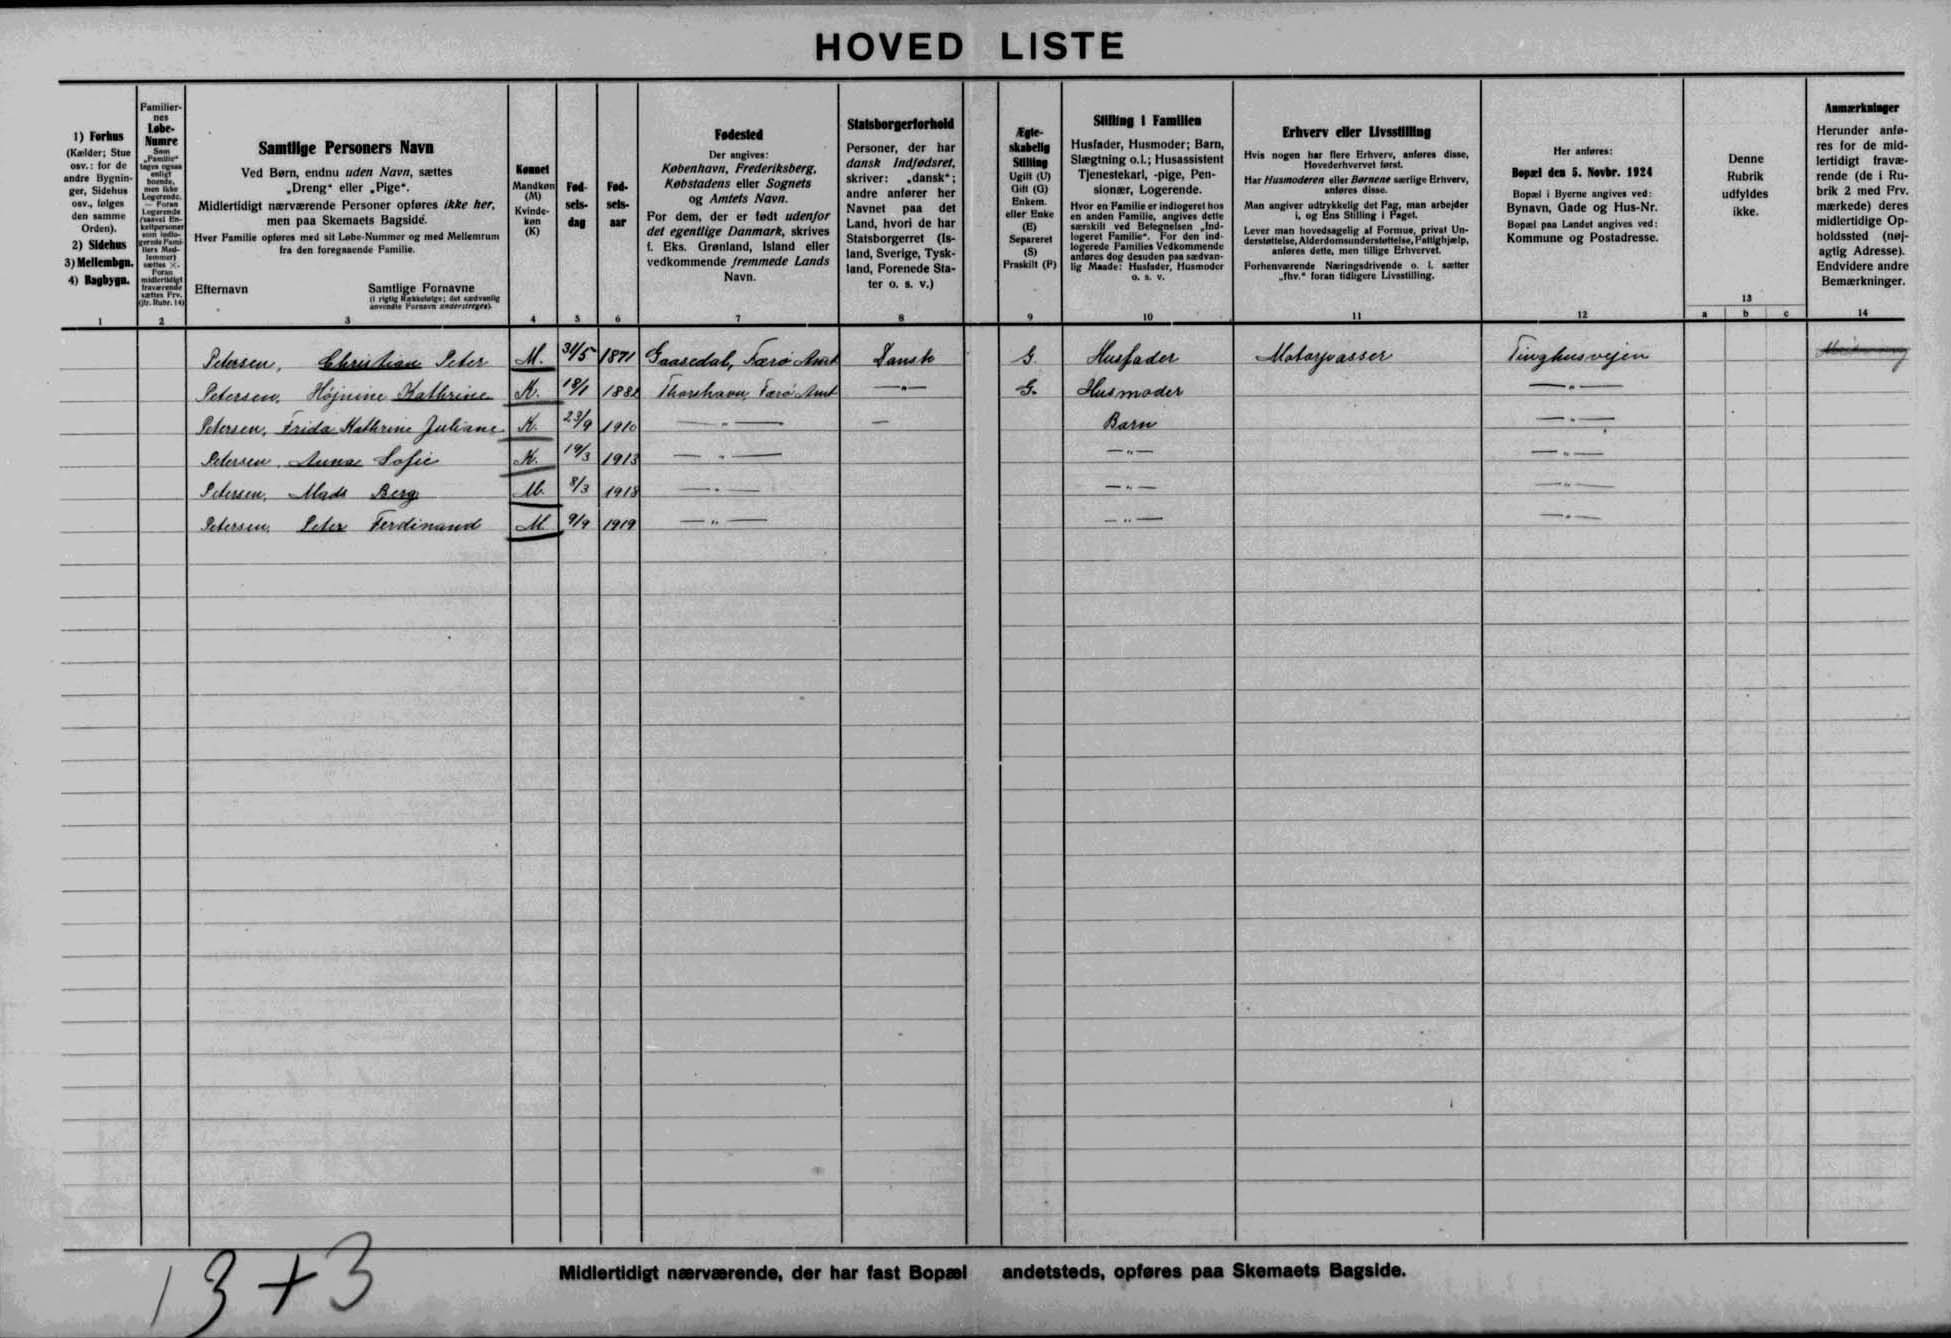 HOVED LISTE
1) Forhus
(Kælder; Stue
osv.: for de
andre Bygnin-
ger, Sidehus
osv., følges
den samme
Orden).
2) Sidehus
3) Mellembgn.
4) Bagbygn.
1
Familier-
nes
Løbe-
Numre
Som
„Familie"
tages ogsaa
enligt
boende,
men ikke
Logerende.
— Foran
Logerende
(saavel En-
keltpersoner
som indlo-
gerede Fami-
liers Med-
lemmer)
sættes ×.
Foran
midlertidigt
fraværende
sættes Frv.
(jfr. Rubr. 14)
2
Samtlige Personers Navn
Ved Børn, endnu uden Navn, sættes
„Dreng" eller „Pige".
Midlertidigt nærværende Personer opføres ikke her,
men paa Skemaets Bagside.
Hver Familie opføres med sit Løbe-Nummer og med Mellemrum
fra den foregaaende Familie.
Efternavn Samtlige Fornavne
(i rigtig Rækkefølge; det sædvanlig
anvendte Fornavn understreges).
3
Kønnet
Mandkøn
(M)
Kvinde-
køn
(K)
4
Fød-
sels-
dag
5
Fød-
sels-
aar
6
Fødested
Der angives:
København, Frederiksberg,
Købstadens eller Sognets
og Amtets Navn.
For dem, der er født udenfor
det egentlige Danmark, skrives
f. Eks. Grønland, Island eller
vedkommende fremmede Lands
Navn.
7
Statsborgerforhold
Personer, der har
dansk Indfødsret,
skriver: „dansk";
andre anfører her
Navnet paa det
Land, hvori de har
Statsborgerret (Is-
land, Sverige, Tysk-
land, Forenede Sta-
ter o. s. v.)
8
Ægte-
skabelig
Stilling
Ugift (U)
Gift (G)
Enkem.
eller Enke
(E)
Separeret
(S)
Fraskilt (F)
9
Stilling i Familien
Husfader, Husmoder; Barn,
Slægtning o.l.; Husassistent
Tjenestekarl, -pige, Pen-
sionær, Logerende.
Hvor en Familie er indlogeret hos
en anden Familie, angives dette
særskilt ved Betegnelsen „Ind-
logeret Familie". For den ind-
logerede Families Vedkommende
anføres dog desuden paa sædvan-
lig Maade: Husfader, Husmoder
o. s. v.
10
Erhverv eller Livsstilling
Hvis nogen har flere Erhverv, anføres disse,
Hovederhvervet først.
Har Husmoderen eller Børnene særlige Erhverv,
anføres disse.
Man angiver udtrykkelig det Fag, man arbejder
i, og Ens Stilling i Faget.
Lever man hovedsagelig af Formue, privat Un-
derstøttelse, Alderdomsunderstøttelse, Fattighjælp,
anføres dette, men tillige Erhvervet.
Forhenværende Næringsdrivende o. l. sætter
„fhv." foran tidligere Livsstilling.
11
Her anføres:
Bopæl den 5. Novbr. 1924
Bopæl i Byerne angives ved:
Bynavn, Gade og Hus-Nr.
Bopæl paa Landet angives ved:
Kommune og Postadresse.
12
Denne
Rubrik
udfyldes
ikke.
13
a b c
Anmærkninger
Herunder anfø-
res for de mid-
lertidigt fravæ-
rende (de i Ru-
brik 2 med Frv.
mærkede) deres
midlertidige Op-
holdssted (nøj-
agtig Adresse).
Endvidere andre
Bemærkninger.
14
Petersen, Christian Peter M. 31/5 1871 Gaasedal, Færø Amt Dansk G. Husfader Motorpasser Tinghusvejen
Petersen, Højnine Kathrine K. 18/1 1882 Thorshavn, Færø Amt — " — G. Husmoder — " —
Petersen, Frida Kathrine Juliane K. 23/9 1910 — " — — Barn — " —
Petersen, Anna Sofie K. 19/3 1913 — " — — " — — " —
Petersen, Mads Berg M. 8/3 1918 — " — — " — — " —
Petersen, Peter Ferdinand M 9/9 1919 — " — — " — — " —
Midlertidigt nærværende, der har fast Bopæl andetsteds, opføres paa Skemaets Bagside.
13+3